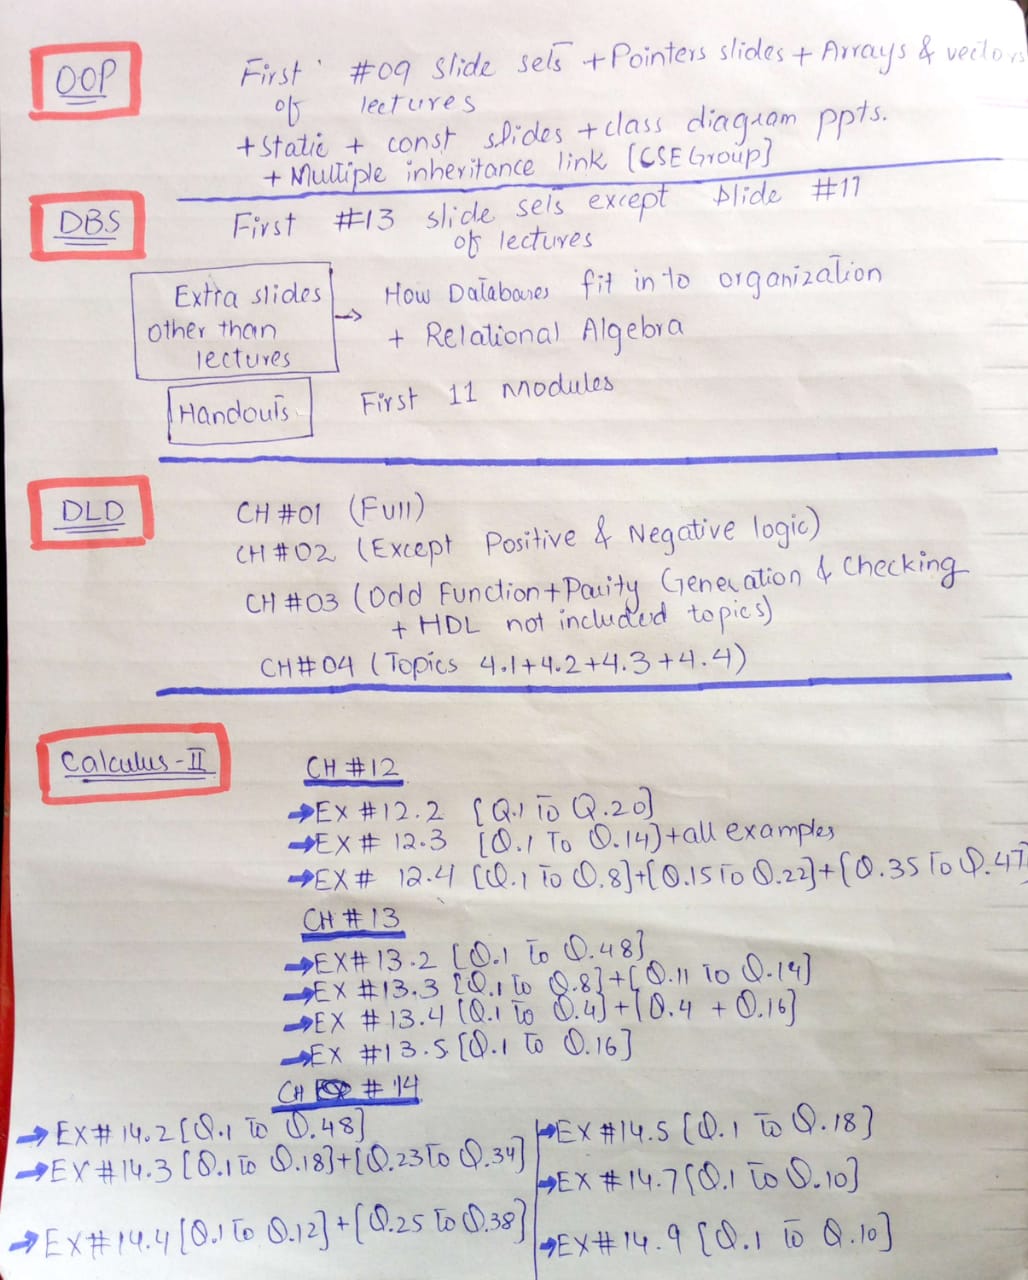 OOP
First #09 slide sets + Pointers slides + Arrays & vectors
of lectures
+ static + const slides + class diagram ppts.
+ Multiple inheritance link [CSE Group]
DBS
First #13 slide sets except slide #11
of lectures
Extra slides
other than
lectures
→ How Databases fit in to organization
+ Relational Algebra
Handouts
First 11 modules
DLD
CH #01 (Full)
CH #02 (Except Positive & Negative logic)
CH #03 (Odd Function + Parity Generation & Checking
+ HDL not included topics)
CH #04 (Topics 4.1+4.2+4.3+4.4)
Calculus-II
CH #12
→ EX #12.2 [Q.1 To Q.20]
→ EX # 12.3 [Q.1 To Q.14] + all examples
→ EX # 12.4 [Q.1 To Q.8]+[Q.15 To Q.22]+[Q.35 To Q.47]
CH #13
→ EX #13.2 [Q.1 To Q.48]
→ EX #13.3 [Q.1 to Q.8]+[Q.11 To Q.14]
→ EX #13.4 [Q.1 To Q.4]+[Q.4 + Q.16]
→ EX #13.5 [Q.1 to Q.16]
CH # 14
→ EX# 14.2 [Q.1 To Q.48]
→ EX #14.3 [Q.1 to Q.18]+[Q.23 To Q.34]
→ EX #14.4 [Q.1 To Q.12]+[Q.25 To Q.38]
→ EX #14.5 [Q.1 To Q.18]
→ EX #14.7 [Q.1 To Q.10]
→ EX #14.9 [Q.1 To Q.10]